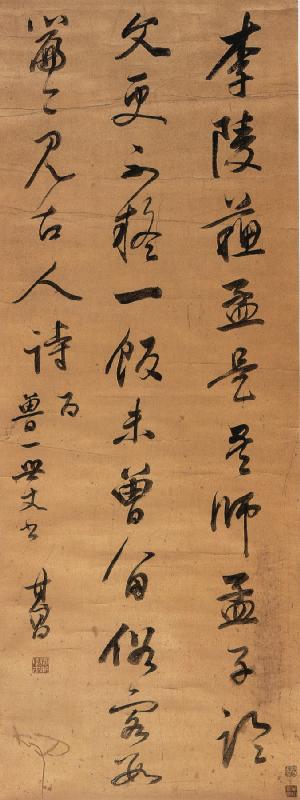 李陵蘇孟是吾師孟子論
文更不疑一飯未曾留俗客數
篇今見古人詩
為魯一世丈書 其昌